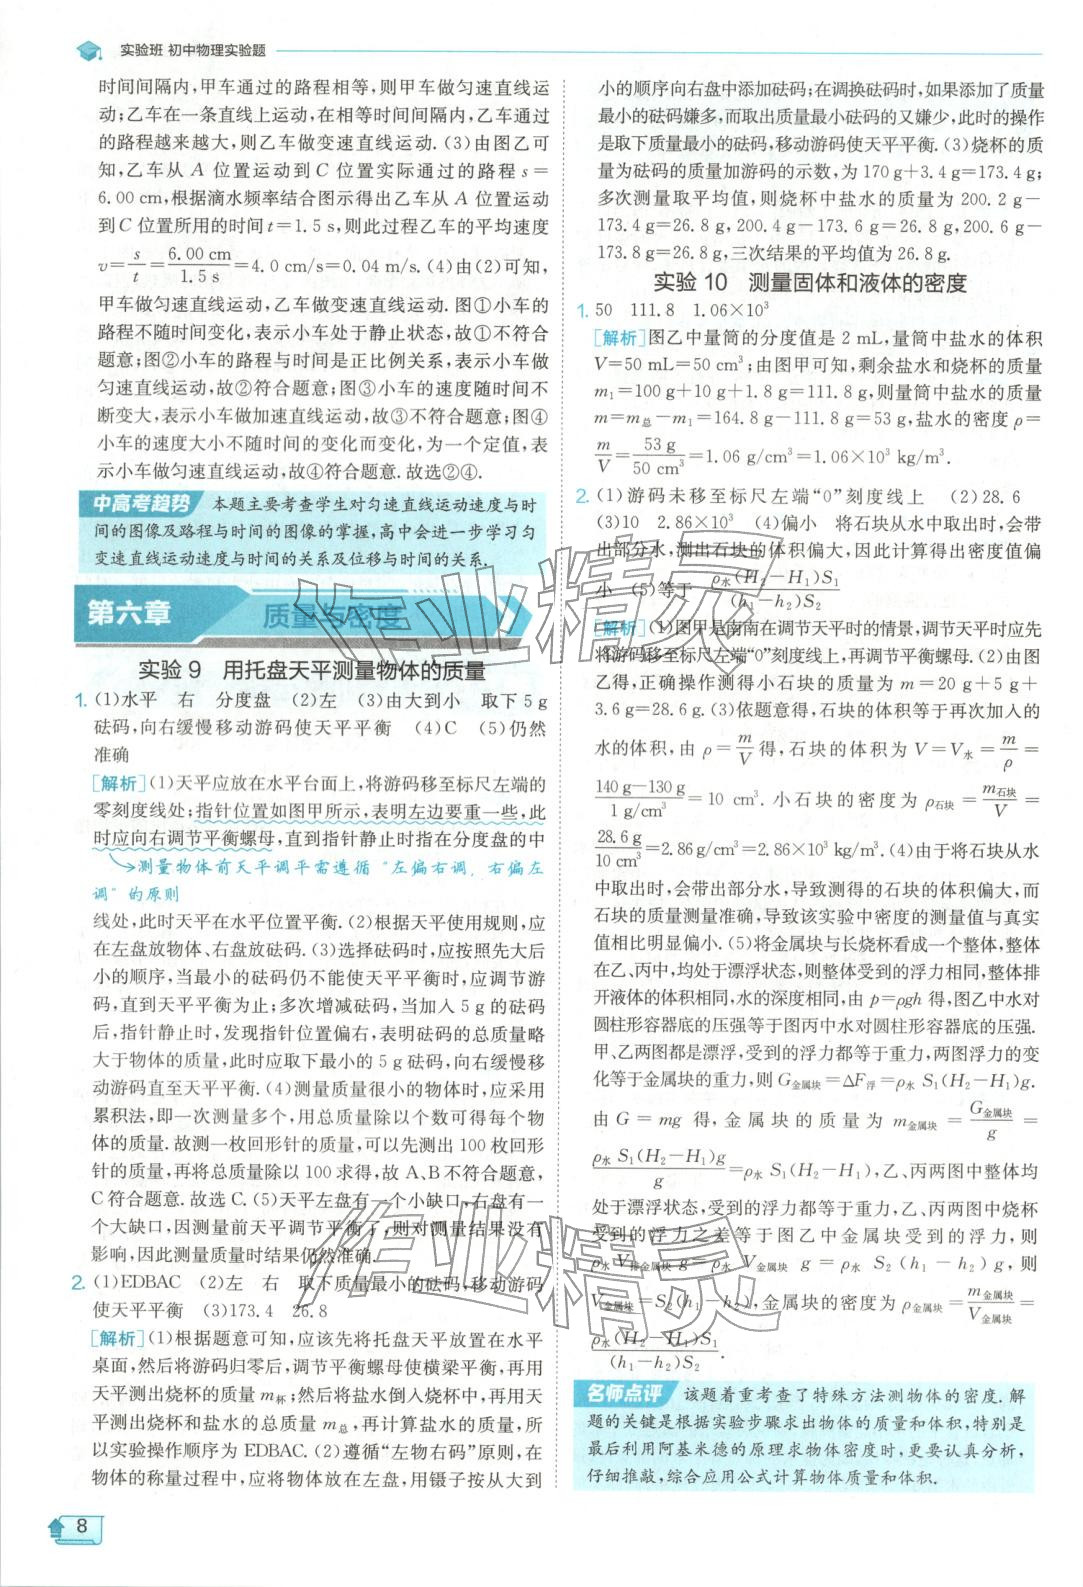 实验班 初中物理实验题
时间间隔内,甲车通过的路程相等,则甲车做匀速直线运
动;乙车在一条直线上运动,在相等时间间隔内,乙车通过
的路程越来越大,则乙车做变速直线运动.(3)由图乙可
知,乙车从 A 位置运动到 C 位置实际通过的路程 s=
6.00 cm,根据滴水频率结合图示得出乙车从 A 位置运动
到 C 位置所用的时间 t=1.5 s,则此过程乙车的平均速度
v=s/t=6.00 cm/1.5 s=4.0 cm/s=0.04 m/s.(4)由(2)可知,
甲车做匀速直线运动,乙车做变速直线运动.图①小车的
路程不随时间变化,表示小车处于静止状态,故①不符合
题意;图②小车的路程与时间是正比例关系,表示小车做
匀速直线运动,故②符合题意;图③小车的速度随时间不
断变大,表示小车做加速直线运动,故③不符合题意;图④
小车的速度大小不随时间的变化而变化,为一个定值,表
示小车做匀速直线运动,故④符合题意.故选②④.
中高考趋势 本题主要考查学生对匀速直线运动速度与时
间的图像及路程与时间的图像的掌握,高中会进一步学习匀
变速直线运动速度与时间的关系及位移与时间的关系.
第六章 质量与密度
实验 9 用托盘天平测量物体的质量
1. (1)水平 右 分度盘 (2)左 (3)由大到小 取下 5 g
砝码,向右缓慢移动游码使天平平衡 (4)C (5)仍然
准确
[解析](1)天平应放在水平台面上,将游码移至标尺左端的
零刻度线处;指针位置如图甲所示,表明左边要重一些,此
时应向右调节平衡螺母,直到指针静止时指在分度盘的中
测量物体前天平调平需遵循“左偏右调,右偏左
调”的原则
线处,此时天平在水平位置平衡.(2)根据天平使用规则,应
在左盘放物体、右盘放砝码.(3)选择砝码时,应按照先大后
小的顺序,当最小的砝码仍不能使天平平衡时,应调节游
码,直到天平平衡为止;多次增减砝码,当加入 5 g 的砝码
后,指针静止时,发现指针位置偏右,表明砝码的总质量略
大于物体的质量,此时应取下最小的 5 g 砝码,向右缓慢移
动游码直至天平平衡.(4)测量质量很小的物体时,应采用
累积法,即一次测量多个,用总质量除以个数可得每个物
体的质量.故测一枚回形针的质量,可以先测出 100 枚回形
针的质量,再将总质量除以 100 求得,故 A、B 不符合题意,
C 符合题意.故选 C.(5)天平左盘有一个小缺口,右盘有一
个大缺口,因测量前天平调节平衡了,则对测量结果没有
影响,因此测量质量时结果仍然准确.
2. (1)EDBAC (2)左 右 取下质量最小的砝码,移动游码
使天平平衡 (3)173.4 26.8
[解析](1)根据题意可知,应该先将托盘天平放置在水平
桌面,然后将游码归零后,调节平衡螺母使横梁平衡,再用
天平测出烧杯的质量 m杯;然后将盐水倒入烧杯中,再用天
平测出烧杯和盐水的总质量 m总,再计算盐水的质量,所
以实验操作顺序为 EDBAC.(2)遵循“左物右码”原则,在
物体的称量过程中,应将物体放在左盘,用镊子按从大到
8
小的顺序向右盘中添加砝码;在调换砝码时,如果添加了质量
最小的砝码嫌多,而取出质量最小砝码的又嫌少,此时的操作
是取下质量最小的砝码,移动游码使天平平衡.(3)烧杯的质
量为砝码的质量加游码的示数,为 170 g+3.4 g=173.4 g;
多次测量取平均值,则烧杯中盐水的质量为 200.2 g-
173.4 g=26.8 g,200.4 g-173.6 g=26.8 g,200.6 g-
173.8 g=26.8 g,三次结果的平均值为 26.8 g.
实验 10 测量固体和液体的密度
1. 50 111.8 1.06×10³
[解析]图乙中量筒的分度值是 2 mL,量筒中盐水的体积
V=50 mL=50 cm³;由图甲可知,剩余盐水和烧杯的质量
m₁=100 g+10 g+1.8 g=111.8 g,则量筒中盐水的质量
m=m总-m₁=164.8 g-111.8 g=53 g,盐水的密度 ρ=
m/V=53 g/50 cm³=1.06 g/cm³=1.06×10³ kg/m³.
2. (1)游码未移至标尺左端“0”刻度线上 (2)28.6
(3)10 2.86×10³ (4)偏小 将石块从水中取出时,会带
出部分水,测出石块的体积偏大,因此计算得出密度值偏
小 (5)等于 ρ水(H₂-H₁)S₁/(h₁-h₂)S₂
[解析](1)图甲是南南在调节天平时的情景,调节天平时应先
将游码移至标尺左端“0”刻度线上,再调节平衡螺母.(2)由图
乙得,正确操作测得小石块的质量为 m=20 g+5 g+
3.6 g=28.6 g.(3)依题意得,石块的体积等于再次加入的
水的体积,由 ρ=m/V得,石块的体积为 V=V水=m/ρ=
140 g-130 g/1 g/cm³=10 cm³.小石块的密度为 ρ石块=m石块/V=
28.6 g/10 cm³=2.86 g/cm³=2.86×10³ kg/m³.(4)由于将石块从水
中取出时,会带出部分水,导致测得的石块的体积偏大,而
石块的质量测量准确,导致该实验中密度的测量值与真实
值相比明显偏小.(5)将金属块与长烧杯看成一个整体,整体
在乙、丙中,均处于漂浮状态,则整体受到的浮力相同,整体排
开液体的体积相同,水的深度相同,由 p=ρgh 得,图乙中水对
圆柱形容器底的压强等于图丙中水对圆柱形容器底的压强.
甲、乙两图都是漂浮,受到的浮力都等于重力,两图浮力的变
化等于金属块的重力,则 G金属块=ΔF浮=ρ水 S₁(H₂-H₁)g.
由 G=mg 得,金属块的质量为 m金属块=G金属块/g=
ρ水 S₁(H₂-H₁)g/g=ρ水 S₁(H₂-H₁),乙、丙两图中整体均
处于漂浮状态,受到的浮力都等于重力,乙、丙两图中烧杯
受到的浮力之差等于图乙中金属块受到的浮力,则
ρ水 V排金属块 g=ρ水 V金属块 g=ρ水 S₂(h₁-h₂)g,则
V金属块=S₂(h₁-h₂),金属块的密度为 ρ金属块=m金属块/V金属块=
ρ水(H₂-H₁)S₁/(h₁-h₂)S₂.
名师点评 该题着重考查了特殊方法测物体的密度.解
题的关键是根据实验步骤求出物体的质量和体积,特别是
最后利用阿基米德的原理求物体密度时,更要认真分析,
仔细推敲,综合应用公式计算物体质量和体积.
作业精灵
作业精灵